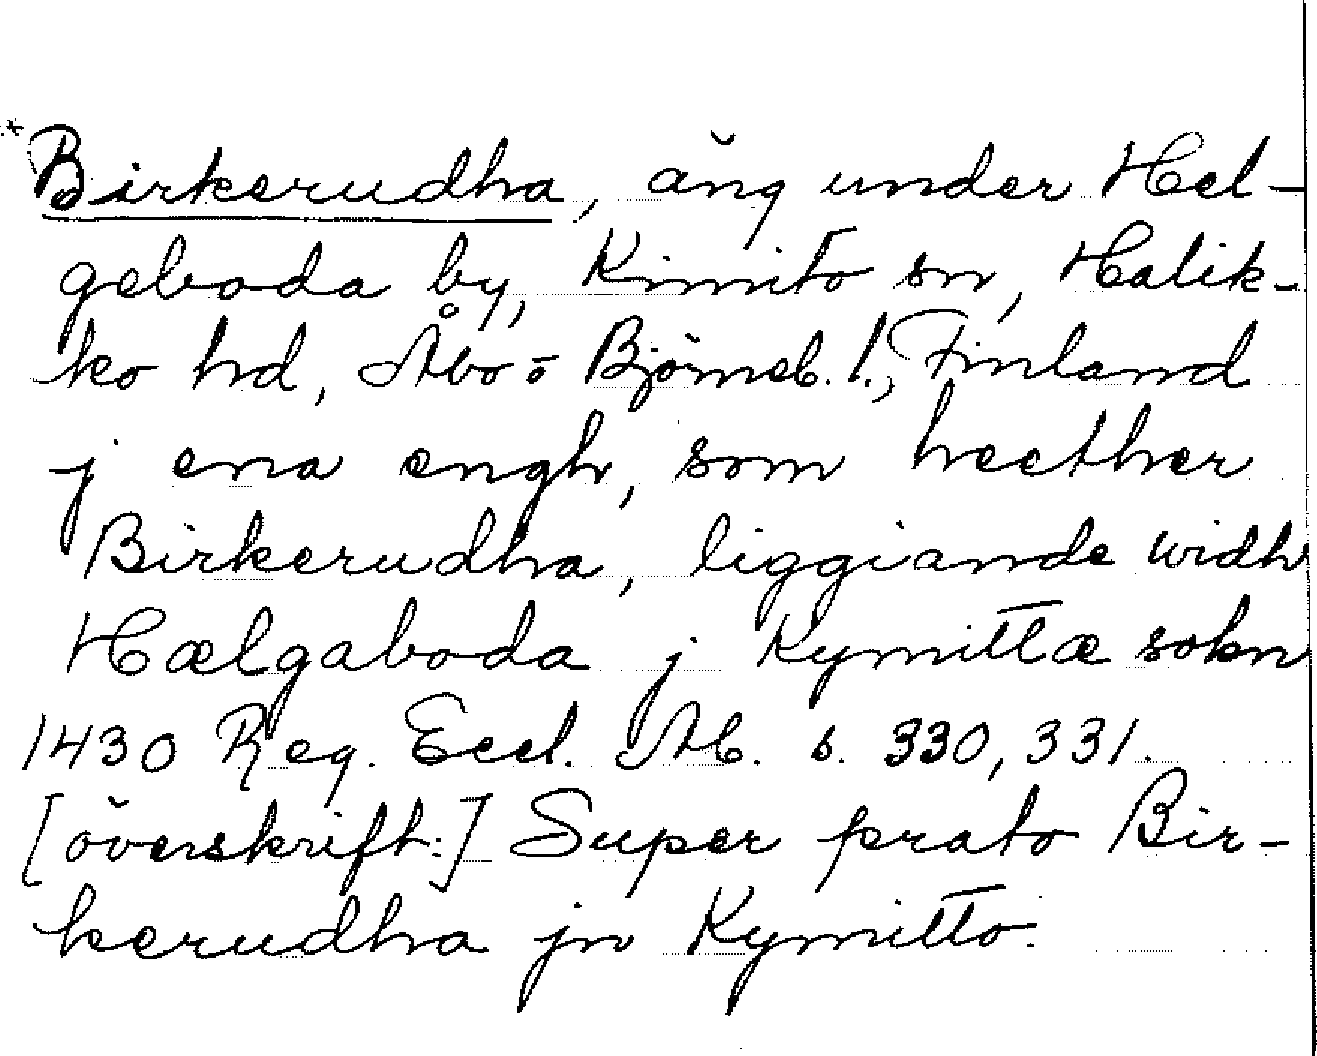 * Birkerudha, äng under Hel-
geboda by, Kimito sn, Halik-
ko hd, Åbo o Björneb. l., Finland
j ena engh, som heether
Birkerudha, liggiande widh
Hælgaboda j Kymittæ sokn
1430 Reg. Eccl. Ab. s. 330, 331.
[överskrift:] Super prato Bir-
kerudha jn Kymitto.